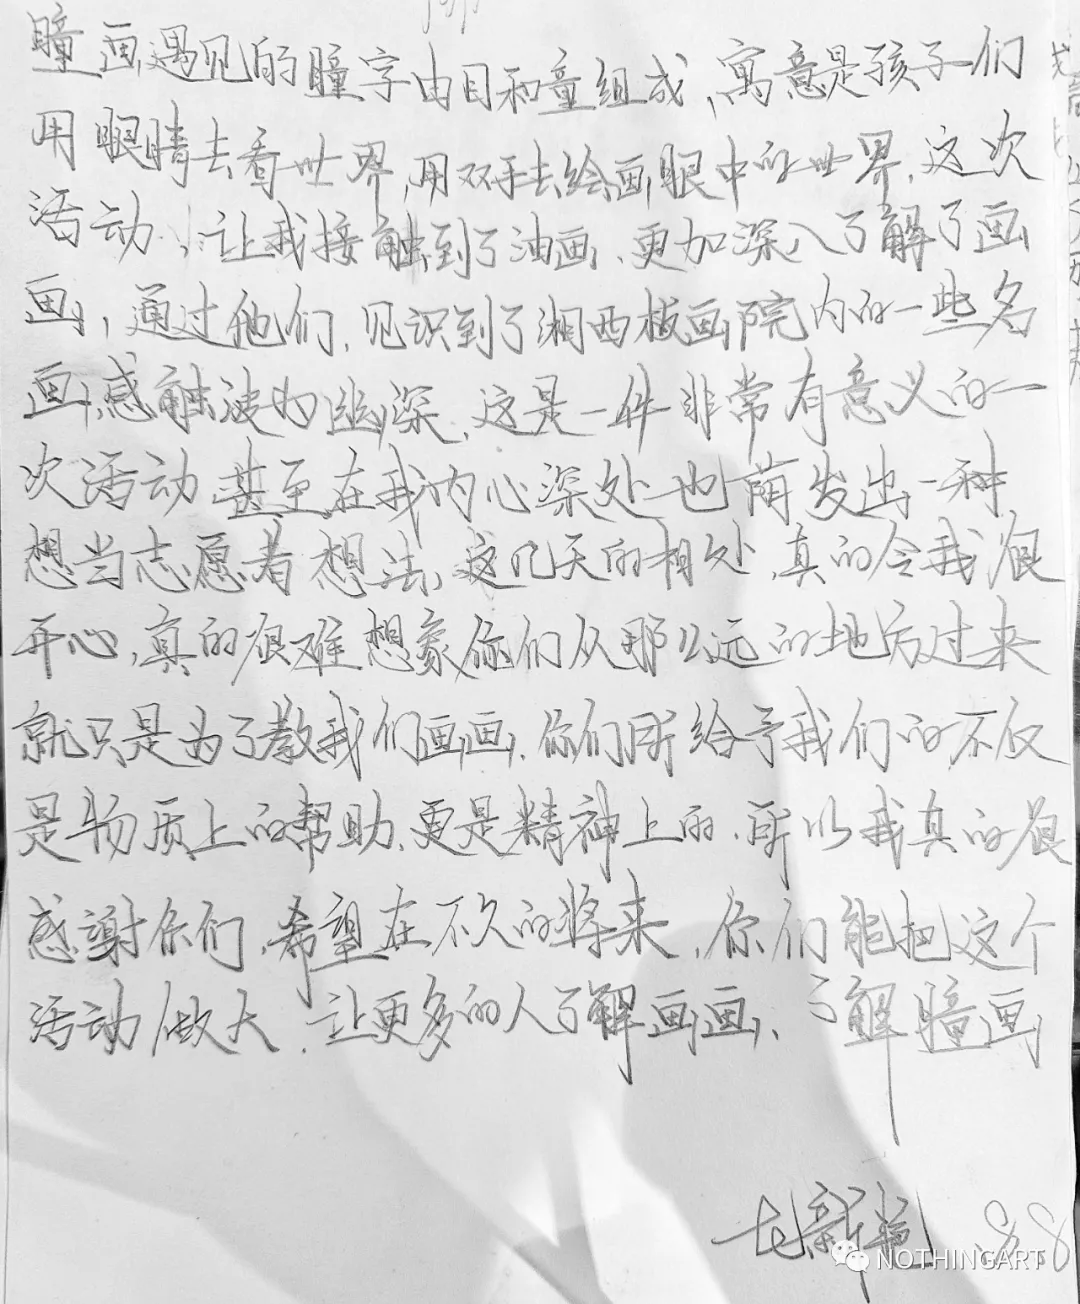 瞳画遇见的瞳字由目和童组成，寓意是孩子们
用眼睛去看世界，用双手去绘画眼中的世界，这次
活动，让我接触到了油画，更加深入了解了画
画，通过他们，见识到了湘西板画院内的一些名
画，感触颇为幽深，这是一件非常有意义的一
次活动，甚至在我内心深处也萌发出一种
想当志愿者想法，这几天的相处，真的令我很
开心，真的很难想象你们从那么远的地方过来
就只是为了教我们画画，你们所给予我们的不仅
是物质上的帮助，更是精神上的，所以我真的很
感谢你们，希望在不久的将来，你们能把这个
活动做大，让更多的人了解画画，了解瞳画
8.8
NOTHINGART